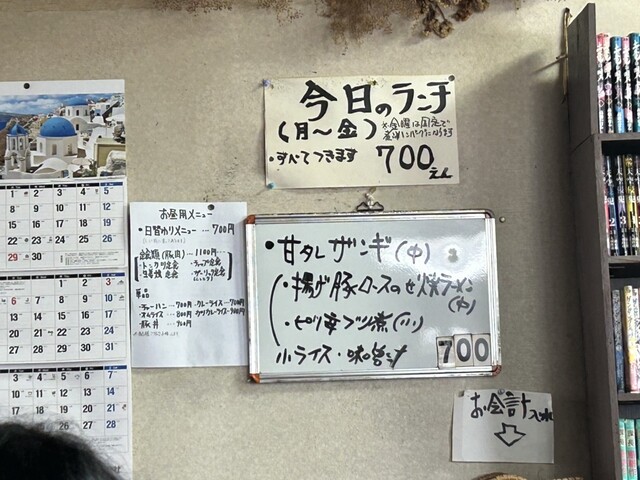 今日のランチ
(月～金)
・すべてつきます 700えん
お昼用メニュー
・日替わりメニュー … 700円
定食類(豚肉) … 1100円
・トンカツ定食
・生姜焼定食
単品
・チャーハン … 700円
・カレーライス … 700円
・オムライス … 800円
・カツカレーライス
・豚丼
・甘タレザンギ(中)
・揚げ豚ロースのせ焼ラーメン
(中)
・ピリ辛ブツ煮(小)
小ライス・味噌汁 700
お会計入れ
1 2 3 4 5
8 9 10 11 12
15 16 17 18 19
22 23 24 25 26
29 30
6 7 8 9 10
13 14 15 16 17
20 21 22 23 24
27 28 29 30 31
3 4 5 6 7
10 11 12 13 14
17 18 19 20 21
24 25 26 27 28